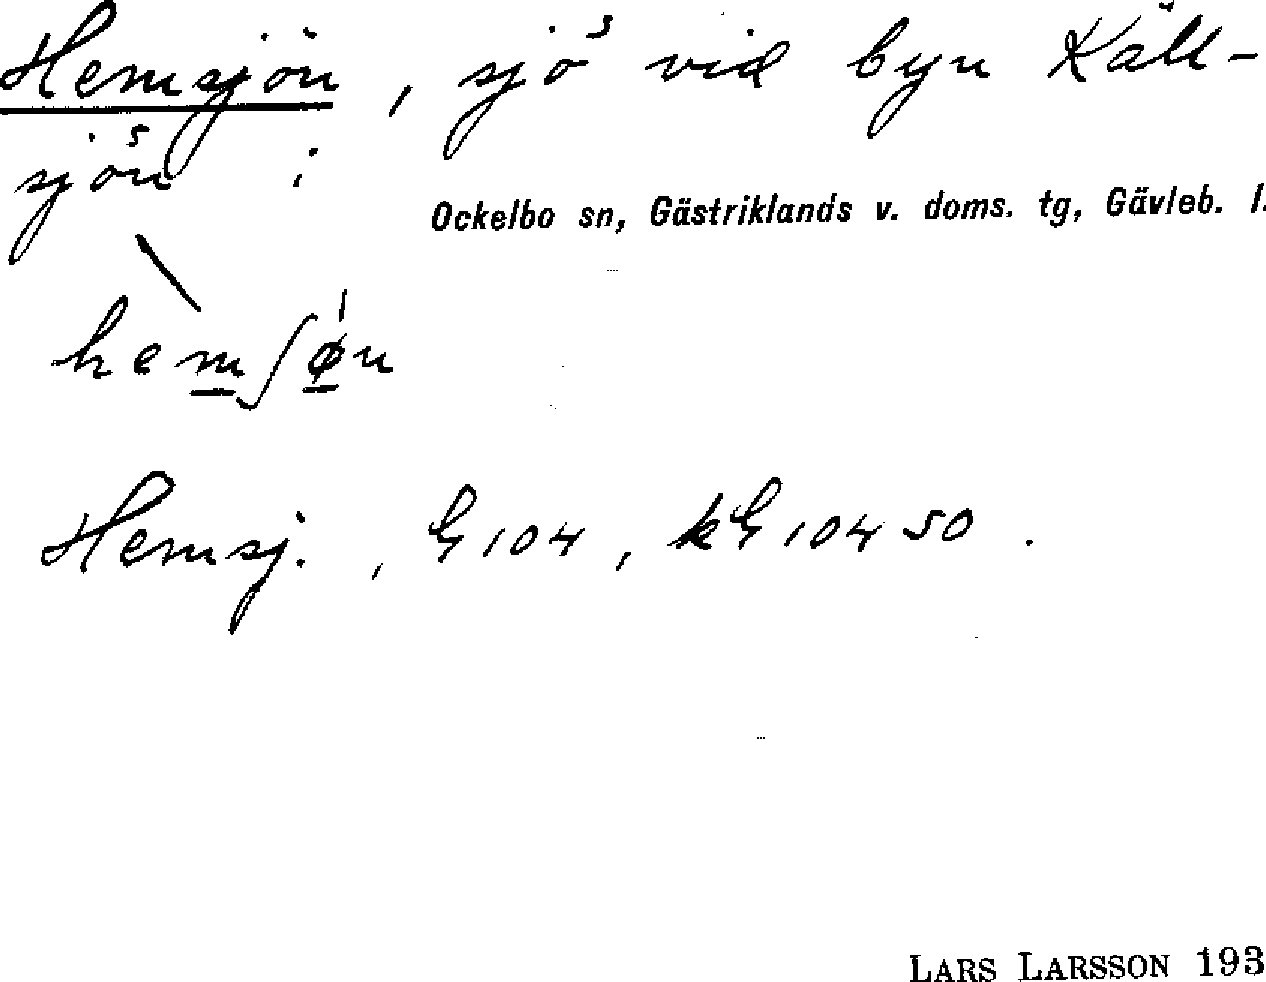 Hemsjön, sjö vid byn Käll-
sjön i
Ockelbo sn, Gästriklands v. doms. tg, Gävleb. l.
hemʃøn
Hemsj., G 104, kG 104 50.
LARS LARSSON 193